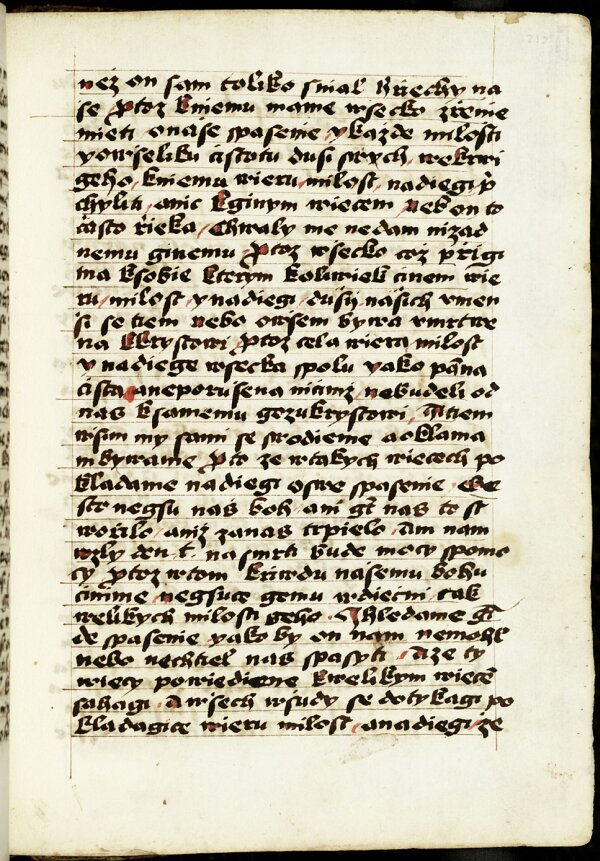 než on sam toliko sňal hřiechy na
se ptoz kniemu mame wsecko zřenie
mieti onase spasenie ykazde milosti
yowseliku cistotu dusi swych wekrwi
geho kniemu wieru milost nadiegi p
chyliti anic kginym wiecem neb on to
často řieka Chwaly me nedam nizad
nemu ginemu Ptoz wsecko coz přigi
ma ksobie kterym kolwiek činem wie
ru milost ynadiegi dusij nasich vmen
si se tiem nebo owsem bywa vmrtwe
na kkrystowi ptoz cela wiera milost
y nadiege wsecka spolu yako pana
čista aneporusena nicimz nebudeli od
nas ksamemu gezukrystowi Atiem
wsim my sami se swodieme aoklama
mbywame pto ze wtakych wiecech po
kladame nadiegi oswe spasenie Ge
sto negsu nas boh ani gt nas to st
wořilo aniz zanas trpielo Am nam
wzly den t nasmrti bude mocy spomo
cy ptoz wtom kriwdu nasemu bohu
cinime negsuce gemu wdiecni tak
welikych milosti geho Ahledame gi
de spasenie yako by on nam nemohl
nebo nechtiel nas spasyti Aze ty
wiecy powiediene kwelikym wiecem
sahagi Awsech wsudy se dotykagi po
kladagice wieru milost anadiegi ze